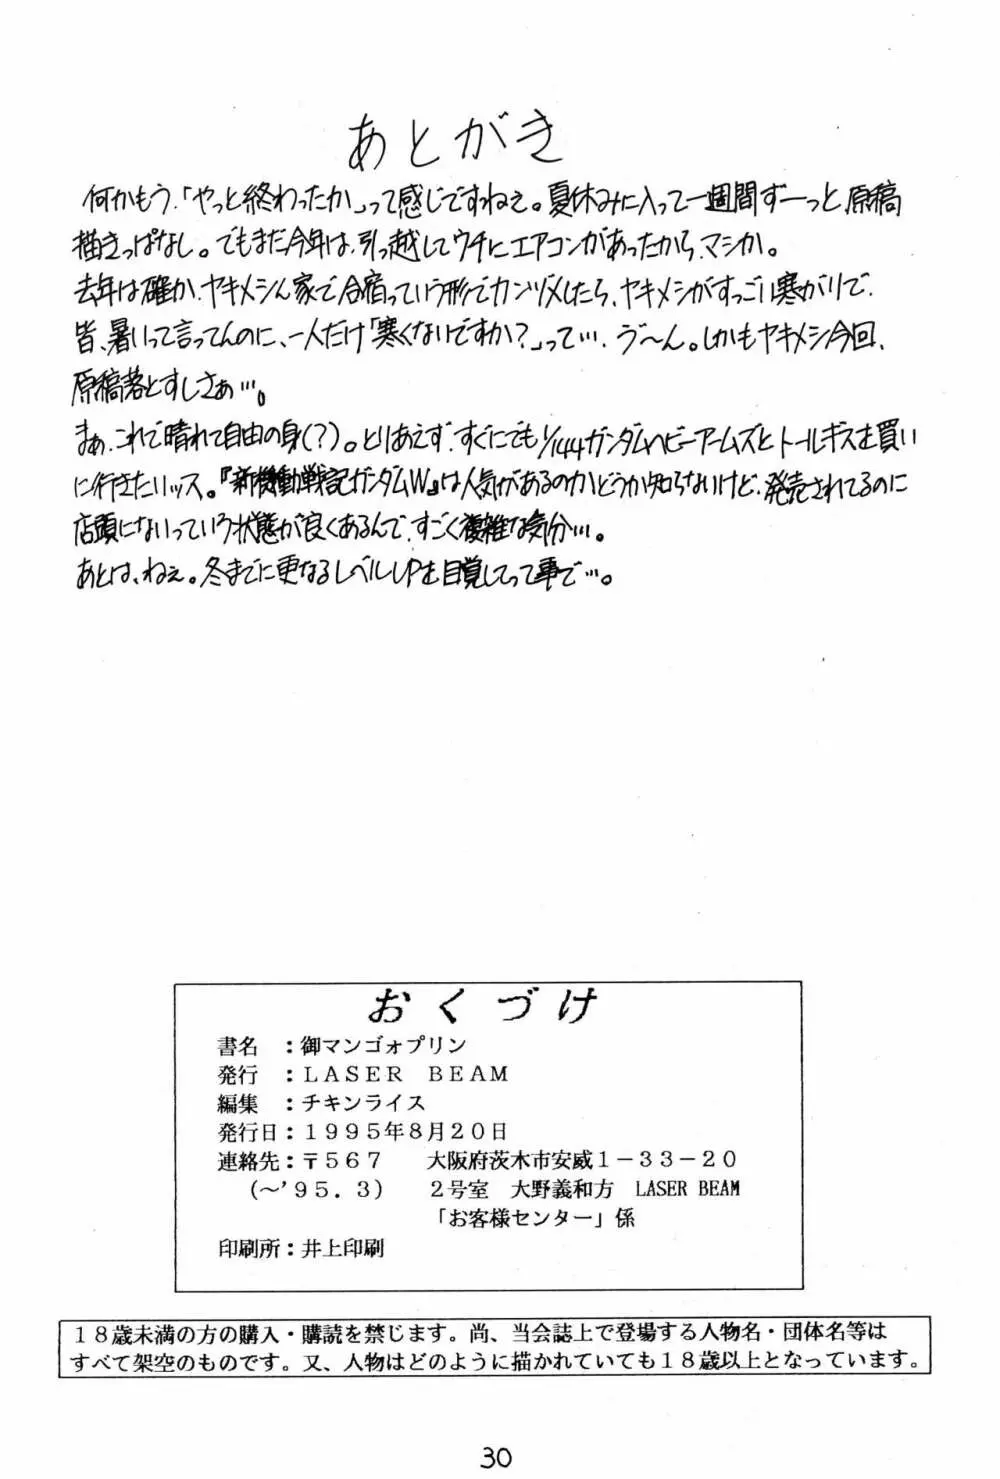 あとがき
何かもう、「やっと終わったか」って感じですねぇ。夏休みに入って一週間ずーっと原稿
描きっぱなし。でもまだ今年は、引っ越してウチにエアコンがあったから、マシか。
去年は確か、ヤキメシん家で合宿っていう形でカンヅメしたら、ヤキメシがすっごい寒がりで、
皆、暑いって言ってんのに、一人だけ「寒くないですか?」って…。う゛〜ん。しかもヤキメシ今回、
原稿落とすしさぁ…。
まぁ、これで晴れて自由の身(?)。とりあえず、すぐにでも1/144ガンダムヘビーアームズとトールギスを買い
に行きたいッス。『新機動戦記ガンダムW』は人気があるのかどうか知らないけど、発売されてるのに
店頭にないっていう状態が良くあるんで、すごく複雑な気分…。
あとは、ねぇ。冬までに更なるレベルUPを目覚してって事で…。
おくづけ
書名 :御マンゴォプリン
発行 :LASER BEAM
編集 :チキンライス
発行日:1995年8月20日
連絡先:〒567 大阪府茨木市安威1-33-20
(〜'95.3) 2号室 大野義和方 LASER BEAM
「お客様センター」係
印刷所:井上印刷
18歳未満の方の購入・購読を禁じます。尚、当会誌上で登場する人物名・団体名等は
すべて架空のものです。又、人物はどのように描かれていても18歳以上となっています。
30